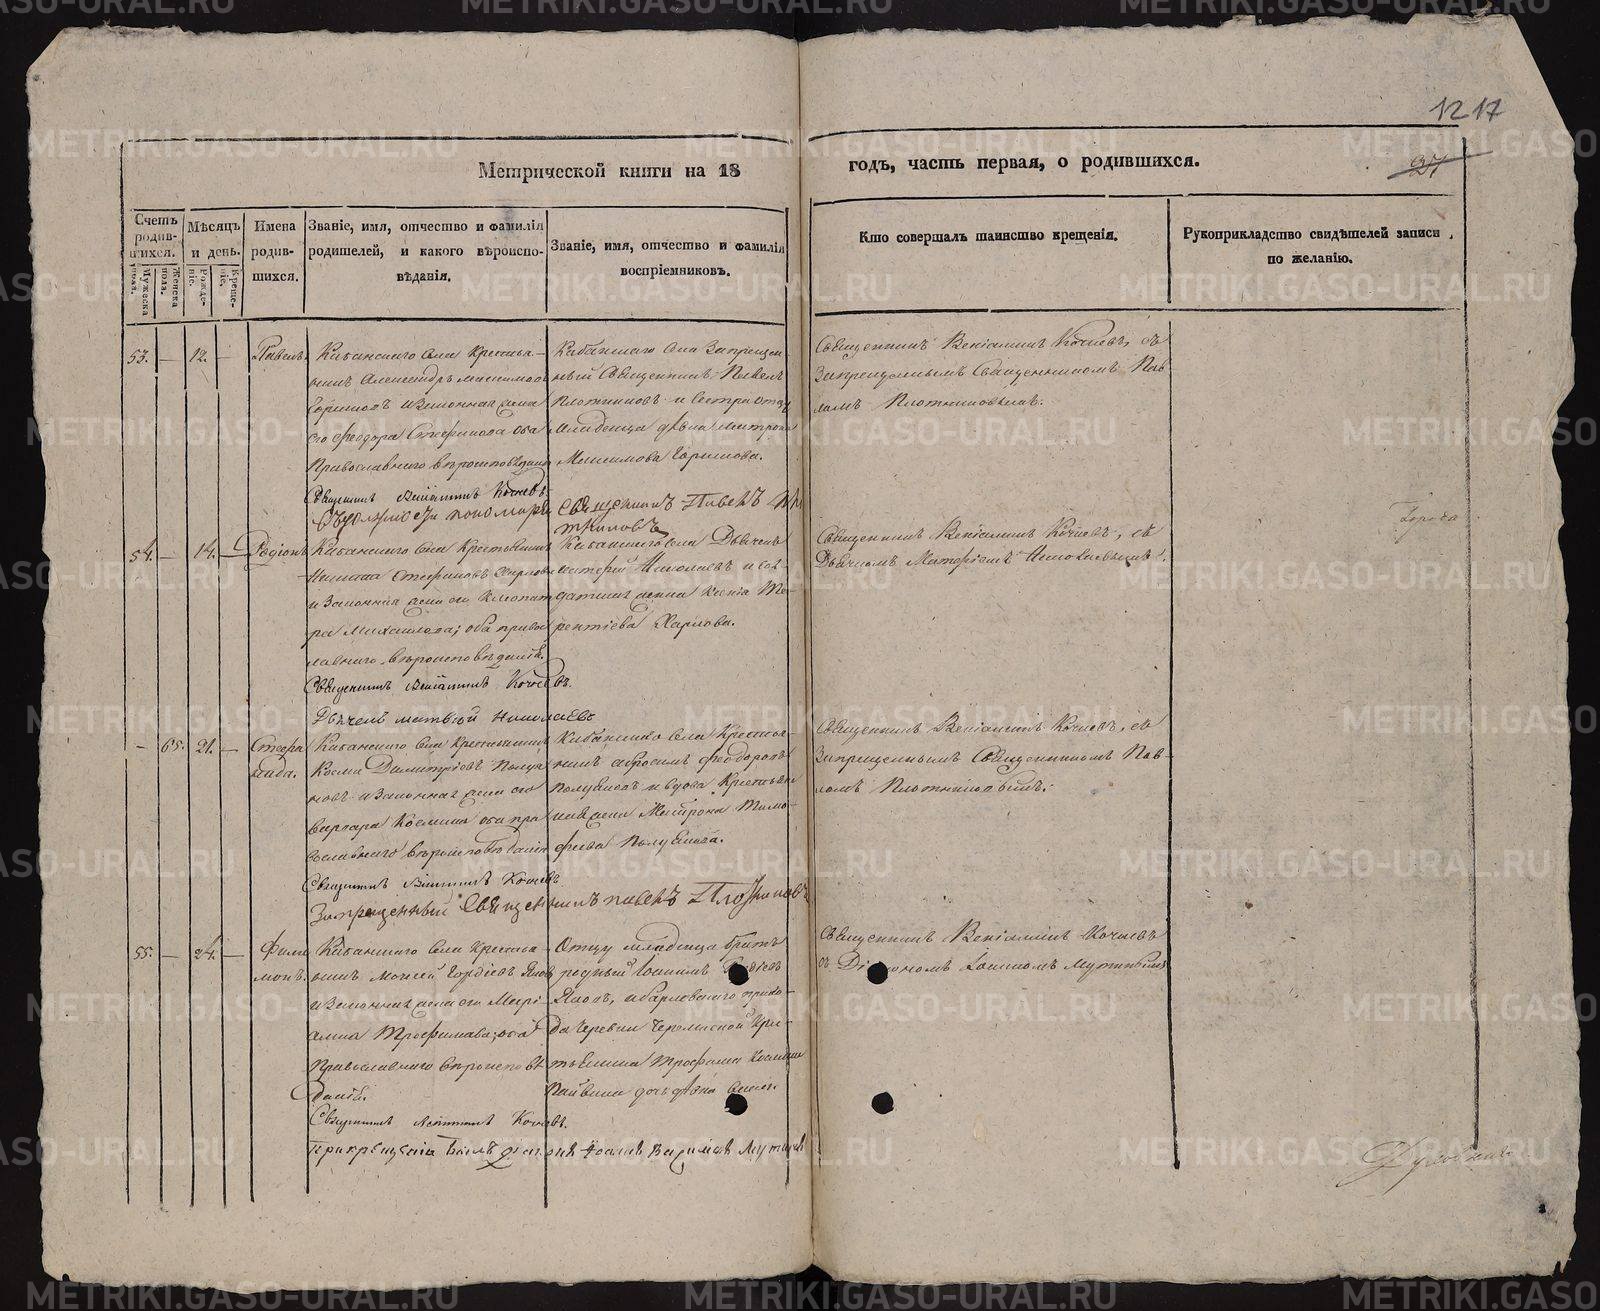 METRIKI.GASO-URAL.RU
12 17
27
Метрической книги на 18
годъ, часть первая, о родившихся.
Счетъ родив-шихся.
Мужеска пола.
Женска пола.
Мѣсяцъ и день.
Рожде-ніе.
Креще-ніе.
Имена родив-шихся.
Званіе, имя, отчество и фамилія родителей, и какого вѣроиспо-вѣданія.
Званіе, имя, отчество и фамилія воспріемниковъ.
Кто совершалъ таинство крещенія.
Рукоприкладство свидѣтелей записи по желанію.
53. — 12. —
Павелъ.
Кабанскаго села крестья-
нинъ Александръ Максимовъ
и законная жена
его Феодора Стефанова оба
Православнаго вѣроисповѣданія
Священникъ Веніаминъ Кочневъ
Кабанскаго села Запрещен
ный Священникъ Павелъ
Плотниковъ и сестра отцу
младенца дѣвка Матрона
Максимова
Священникъ Павелъ Пло
тниковъ
Священникъ Веніаминъ Кочневъ, съ
Запрещеннымъ Священникомъ Пав
ломъ Плотниковымъ.
54. — 14. —
Родіонъ
Кабанскаго села крестьянинъ
Никита Стефановъ Харловъ
и законная жена его Клеопат
ра Михайлова; оба право
лавнаго вѣроисповѣданія.
Священникъ Веніаминъ Кочневъ.
Дьячекъ Матвей Николаевъ
Кабанскаго села Дьячекъ
Матфей Николаевъ и сол-
датская жена Ксенія Те-
рентіева Харлова.
Священникъ Веніаминъ Кочневъ, съ
Дьячкомъ Матфіемъ Николаевымъ.
— 65. 21. —
Стефа
нида.
Кабанскаго села крестьянинъ
Косма Димитріевъ Полуя
новъ и законная жена его
Варвара Космина оба пра
вославнаго вѣроисповѣданія
Священникъ Веніаминъ Кочневъ
Запрещенный Священникъ Павелъ Плотниковъ
Кабанскаго села крестья-
нинъ Абросимъ Феодоровъ
Полуяновъ и вдова крестьян
Матрона Тимо-
феева Полуянова.
Священникъ Веніаминъ Кочневъ, съ
Запрещеннымъ Священникомъ Пав-
ломъ Плотниковымъ.
55. — 24. —
Фили
монъ.
Кабанскаго села крестья-
нинъ Моисей Гордіевъ
и законная жена его Марі-
амна Трофимова; оба
Православнаго вѣроисповѣ
данія.
Священникъ Веніаминъ Кочневъ.
При крещеніи былъ діаконъ Іоаннъ
Отцу младенца братъ
родный Іоакимъ
прихо-
да деревни Черемиской кре-
стьянина Трофима Космина
дочь дѣвка
Священникъ Веніаминъ Кочневъ
съ Діакономъ Іоанномъ